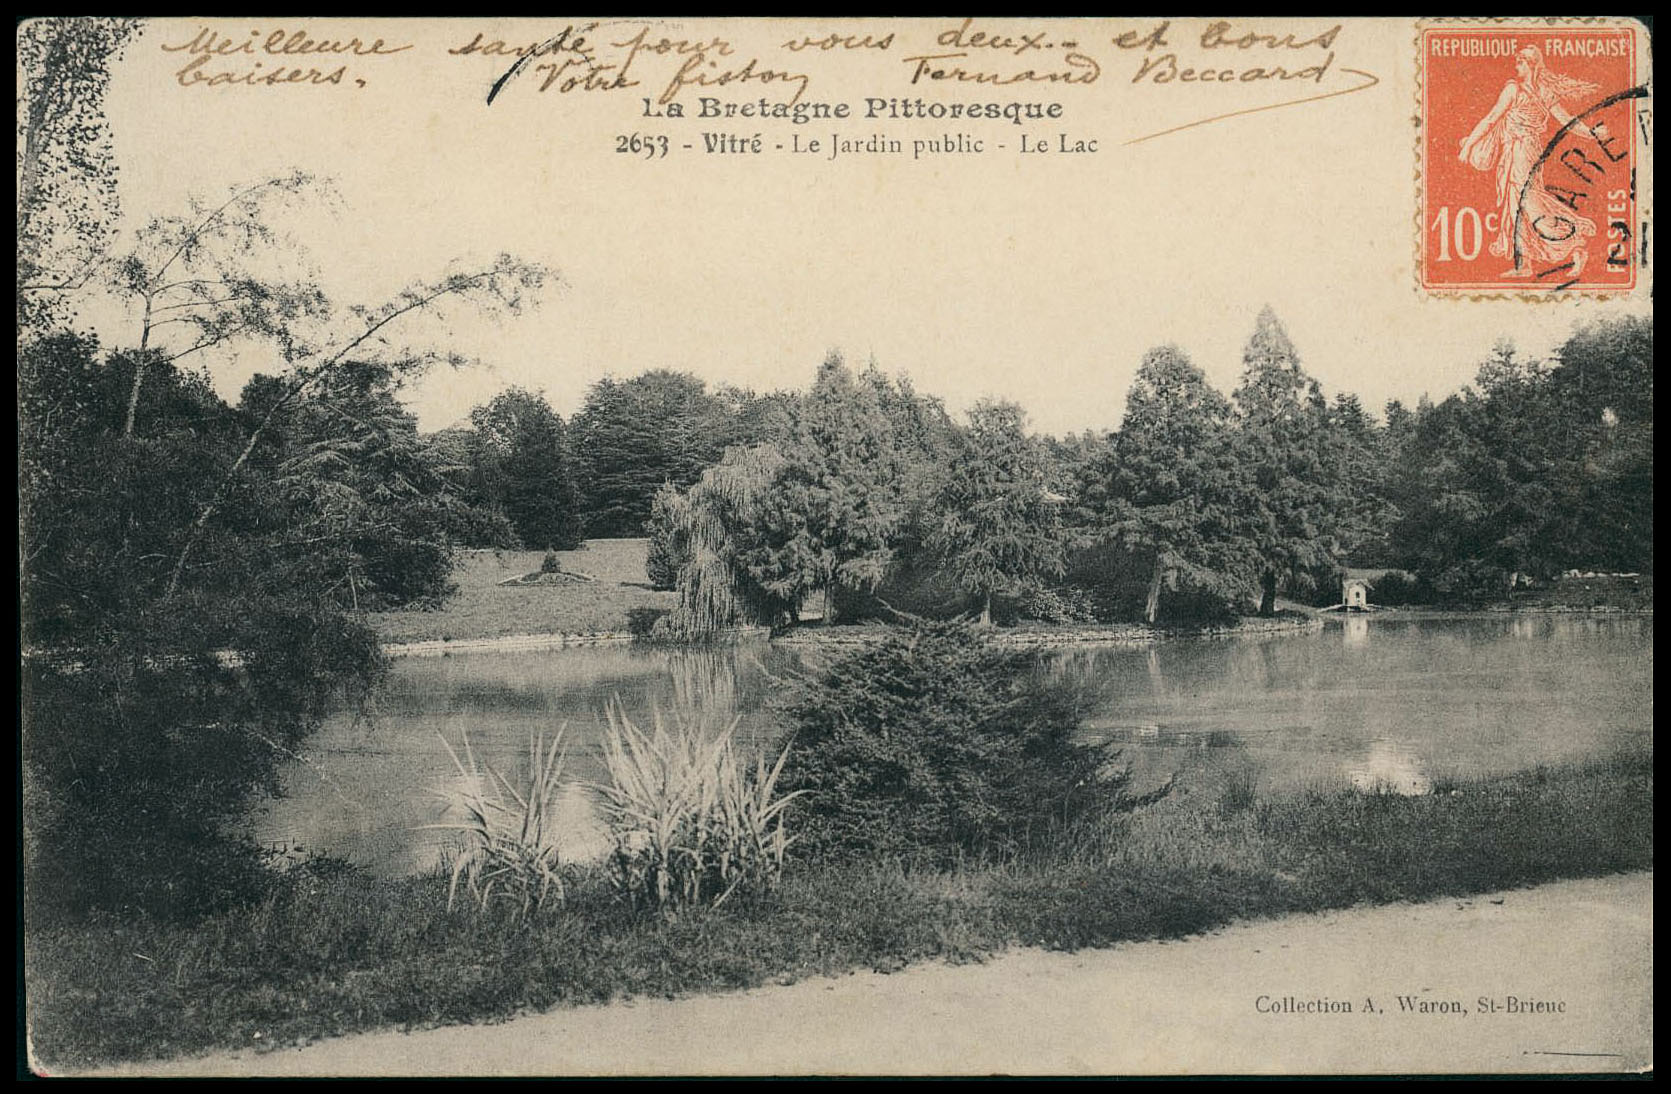 Meilleure santé pour vous deux.- et bons
baisers. Votre fiston Fernand Beccard
La Bretagne Pittoresque
2653 - Vitré - Le Jardin public - Le Lac
REPUBLIQUE FRANÇAISE
10c
POSTES
GARE
21
Collection A. Waron, St-Brieuc